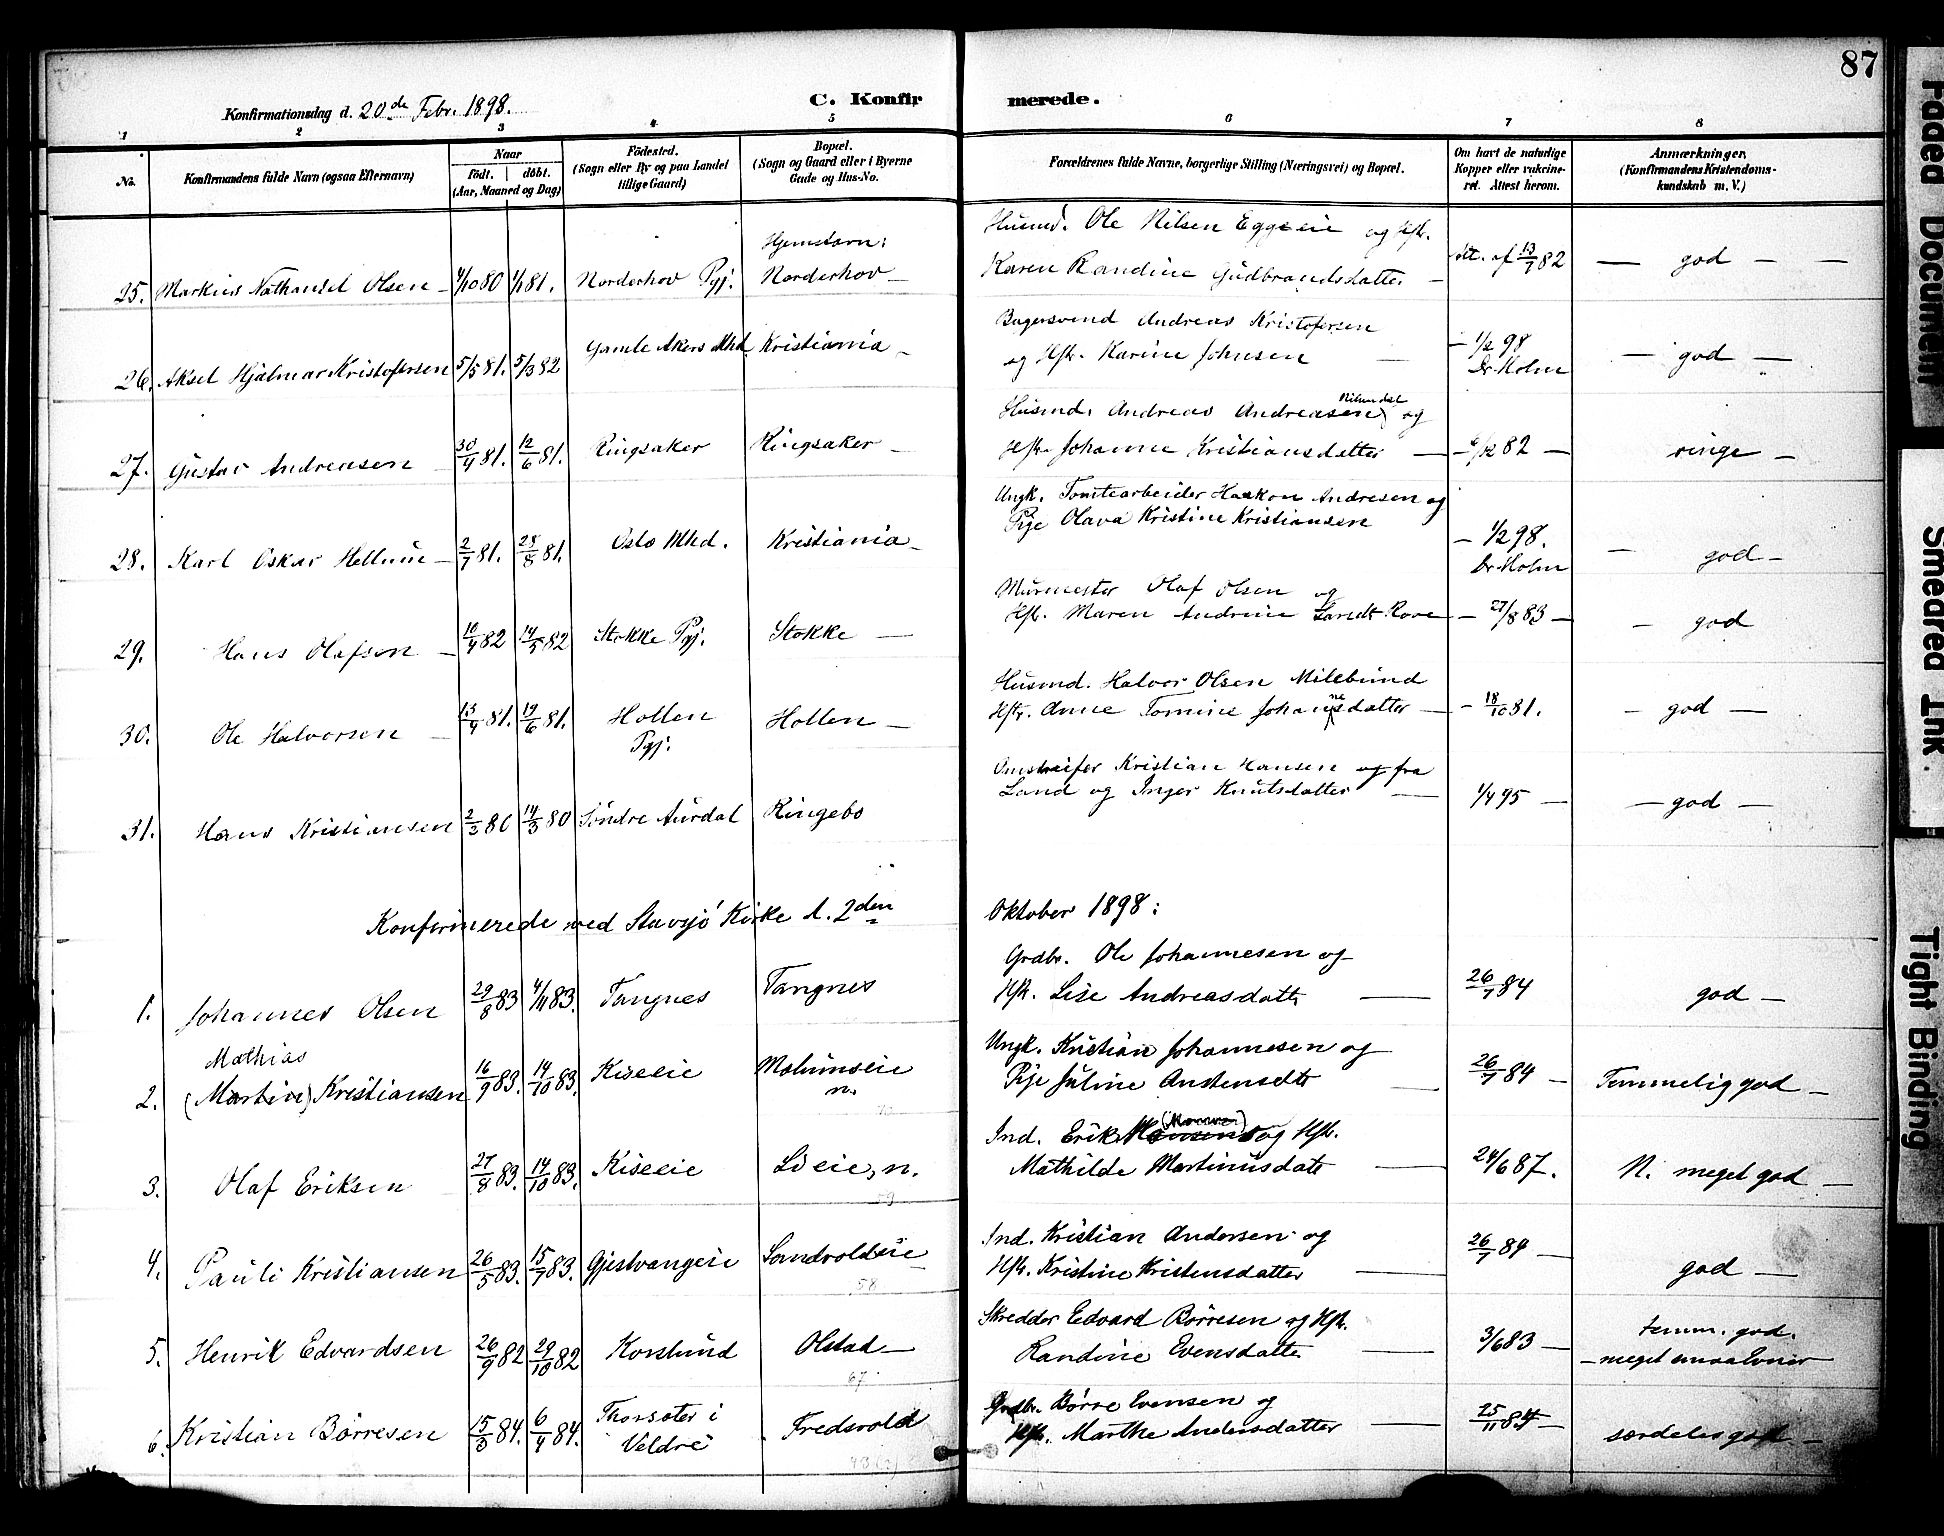 87
Konfirmationsdag d. 20de Febr. 1898.
C. Konfirmerede.
1 2 3 4 5 6 7 8
No.
Konfirmandens fulde Navn (ogsaa Efternavn)
Naar
født. døbt.
(Aar, Maaned og Dag)
Fødested.
(Sogn eller By og paa Landet
tillige Gaard)
Bopæl.
(Sogn og Gaard eller i Byerne
Gade og Hus-No.
Forældrenes fulde Navne, borgerlige Stilling (Næringsvei) og Bopæl.
Om havt de naturlige
Kopper eller vakcine-
ret. Attest herom.
Anmærkninger.
(Konfirmandens Kristendoms-
kundskab m. V.)
Hjemstavn:
Husmd. Ole Nilsen Eggeeie og Hst.
25. Markus Nathanael Olsen 4/10 80 1/1 81. Norderhov Pgj. Norderhov Karen Randine Gudbrandsdatter att. af 13/7 82 god
Bagersvend Andreas Kristofersen
26. Aksel Hjalmar Kristofersen 5/5 81. 5/3 82 Gamle Akers Mhd. Kristiania og Hstr. Karine Johnsen 1/2 98 Dr. Holm god
Husmd. Andreas Andreasen og
27. Gustav Andreasen 30/4 81. 12/6 81. Ringsaker Ringsaker Hstr. Johanne Kristiansdatter 6/12 82 ringe
Ungk. Tomtearbeider Haakon Andresen og
28. Karl Oskar Hellum 2/7 81. 28/8 81. Oslo Mhd. Kristiania Pige Olava Kristine Kristiansen 1/2 98. Dr. Holm god
Murmester Olaf Olsen og
29. Hans Olafsen 10/4 82 14/5 82 Stokke Pgj. Stokke Hstr. Maren Andrine Sandt Rove 27/8 83 god
Husmd. Halvor Olsen Milebund
30. Ole Halvorsen 13/4 81. 19/6 81. Hollen Pgj. Hollen Hstr. Anne Tomine Johannesdatter 18/10 81. god
Omstreifer Kristian Hansen og fra
31. Hans Kristiansen 2/3 80 14/3 80 Söndre Aurdal Ringebo Land og Inger Knutsdatter 1/4 95 god
Konfirmerede ved Stavsjö Kirke d. 2den Oktober 1898:
Grdbr. Ole Johannesen og
1. Johannes Olsen 29/8 83 4/11 83. Tangnes Tangnes Hstr. Lise Andreasdatt. 26/7 84 god
Mathias Ungk. Kristian Johannesen og
2. (Martin) Kristiansen 16/9 83. 14/10 83. Kiseeie Mohimseie n. Pige Juline Anstensdtr 26/7 84 Temmelig god
Ind. Erik Hansen (Monsen) og Hst.
3. Olaf Eriksen 27/8 83. 14/10 83. Kiseeie Lieie, n. Mathilde Martinusdatt 24/6 87. N. meget god
59
Ind. Kristian Andersen og
4. Pauli Kristiansen 26/5 83. 15/7 83. Gjestvangeie Sandvoldeie Hstr. Kristine Kristensdatter 26/7 84 god
58
Skredder Edvard Børresen og Hstr.
5. Henrik Edvardsen 26/9 82 29/10 82 Korslund Olstad Randine Evensdatte 3/6 83 temm. god.
meget smaa Evner
67
Grdbr. Børre Evensen og
6. Kristian Börresen 15/3 84. 6/4 84. Thorsæter i Veldre Fredsvold Hstr. Marthe Andersdatter 25/11 84 særdeles god
Faded Document
Smeared Ink.
Tight Binding